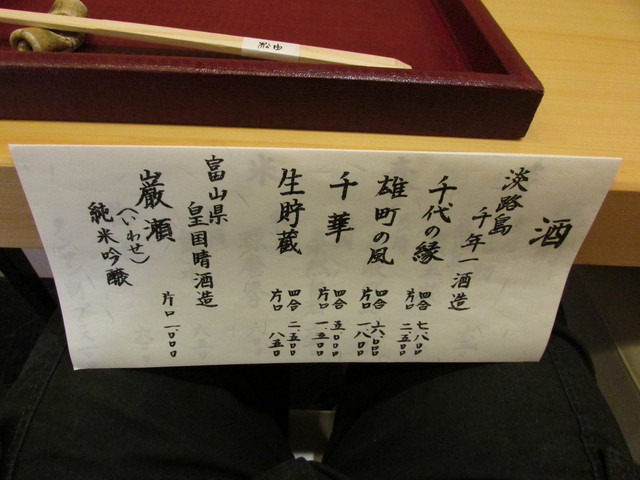 松由
酒
淡路島
千年一酒造
千代の縁 四合 七、八〇〇
片口 二、五〇〇
雄町の風 四合 六、〇〇〇
片口 一、八〇〇
千華 四合 五、〇〇〇
片口 一、五〇〇
生貯蔵 四合 二、五〇〇
片口 八五〇
富山県
皇国晴酒造
巌瀬
(いわせ)
純米吟醸
片口 一、〇〇〇